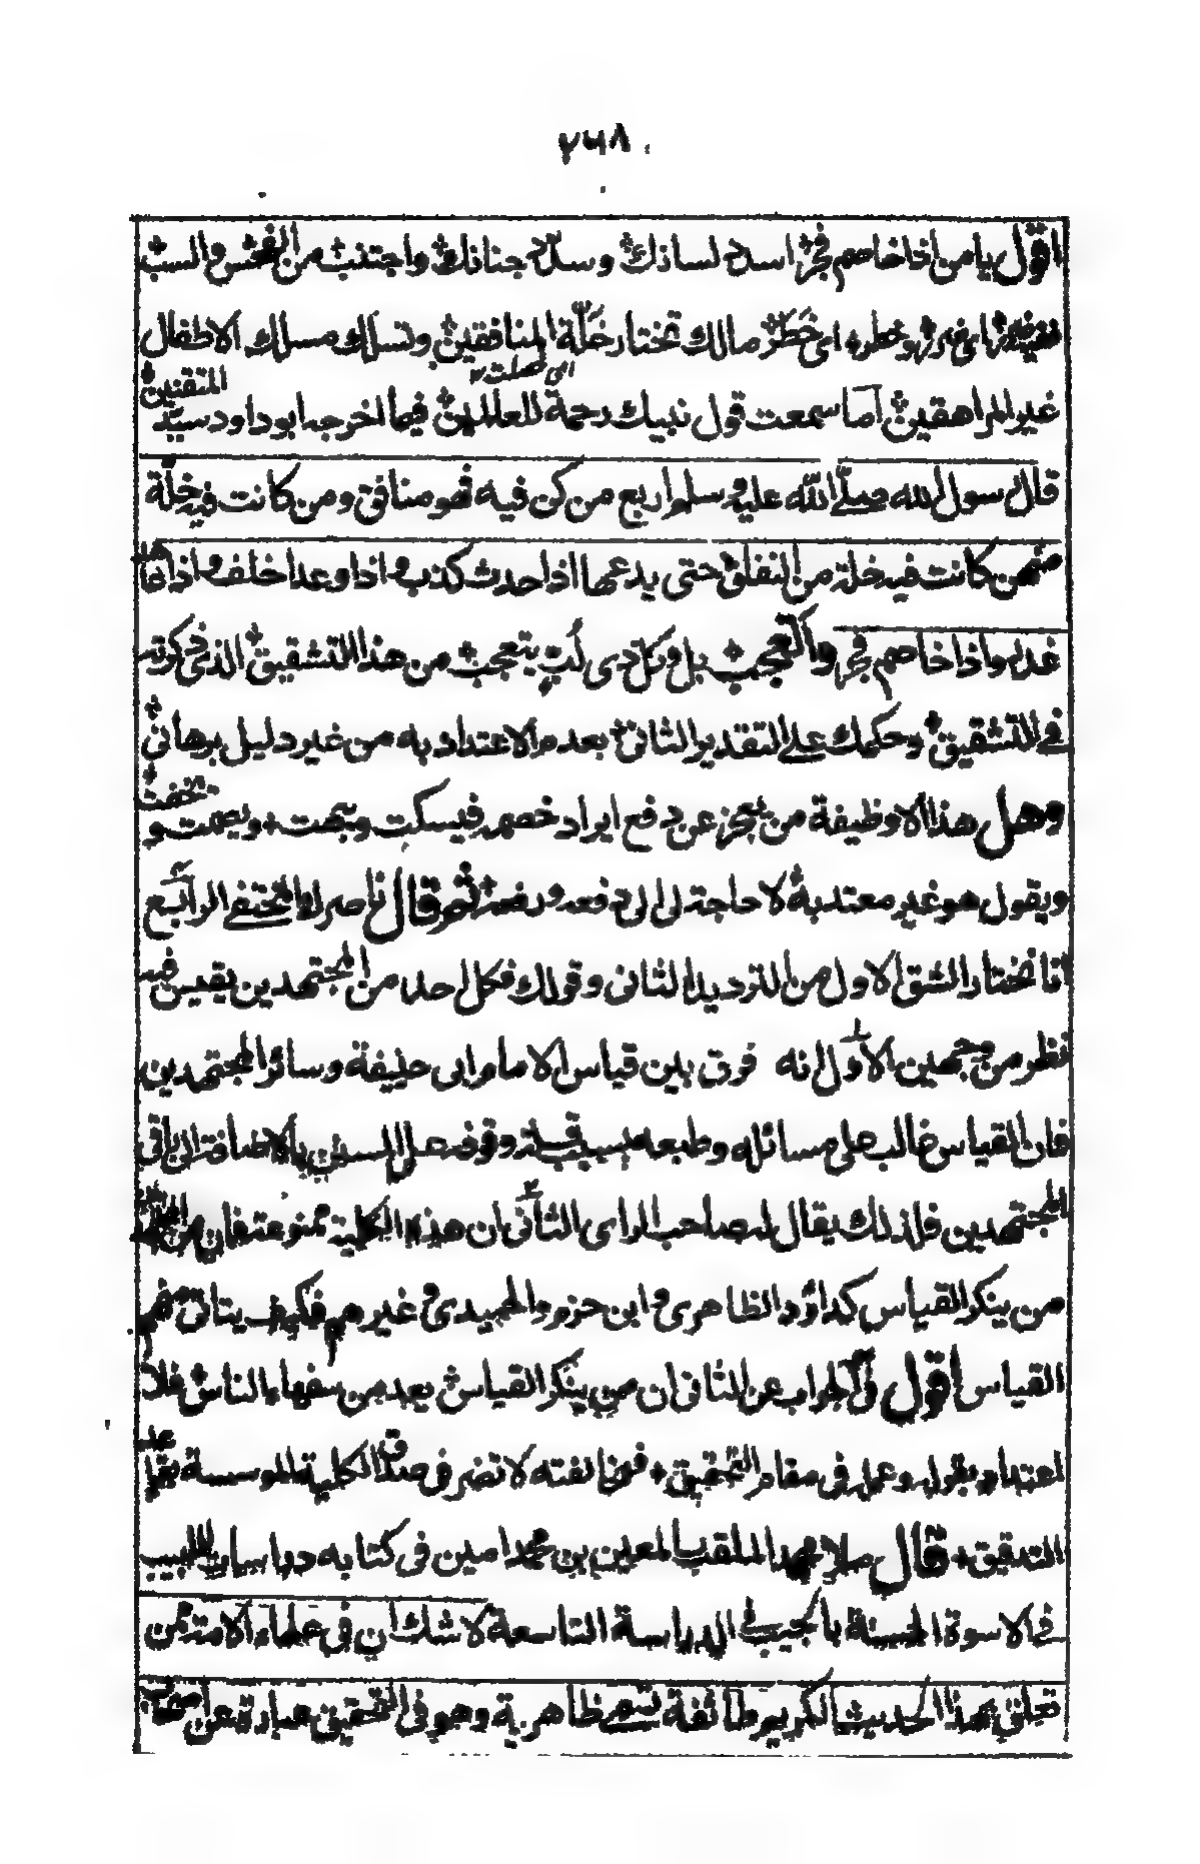 ٢٦٨
اقول يا من اذا خاصم فجر اسدد لسانك وسدد جنانك واجتنب من الفحش والسب
اى خطر مالك تختار خلة المنافقين وتسلك مسلك الاطفال
اى خصلت
غير المراهقين اما سمعت قول نبيك رحمة للعلمين فيما اخرجه ابو داود سيد المتقنين
قال رسول الله صلى الله عليه وسلم اربع من كن فيه فهو منافق ومن كانت فيه خلة
منهن كانت فيه خلة من النفاق حتى يدعها اذا حدث كذب واذا وعد اخلف واذا عاهد
غدر واذا خاصم فجر والعجب بل وكل ذى لب يتعجب من هذا التشقيق الذى ذكرته
فى التشقيق وحكمك على التقدير الثانى بعدم الاعتداد به من غير دليل برهانى
وهل هذا الا وظيفة من يعجز عن دفع ايراد خصمه فيسكت ويبهت ويصمت ويخفت
ويقول هو غير معتد به لا حاجة لى الى دفعه ورفعه ثم قال ناصرك المختفى الرابع
انا نختار الشق الاول من الترديد الثانى وقولك فكل احد من المجتهدين يقيس فيه
نظر من وجهين الاول انه فرق بين قياس الامام ابى حنيفة وسائر المجتهدين
فان القياس غالب على مسائله وطبعه بالاضافة الى باقى
المجتهدين فلذلك يقال له صاحب الراى الثانى ان هذه الكلية ممنوعة فان من
من ينكر القياس كداؤد الظاهرى وابن حزم والحميدى وغيرهم فكيف يتاتى منهم
القياس اقول والجواب عن الثانى ان من ينكر القياس يعد من سفهاء الناس فلا
اعتداد بقوله وعمله فى مقام التحقيق فمخالفته لا تضر فى صدق الكلية الموسسة على
التدقيق قال ملا محمد الملقب بالمعين بن محمد امين فى كتابه دراسات اللبيب
فى الاسوة الحسنة بالحبيب فى الدراسة التاسعة لا شك ان فى علماء الامة ممن
تعلق بهذا الحديث الكريم طائفة تسمى ظاهرية وهو فى التحقيق عبارة عن اصحاب